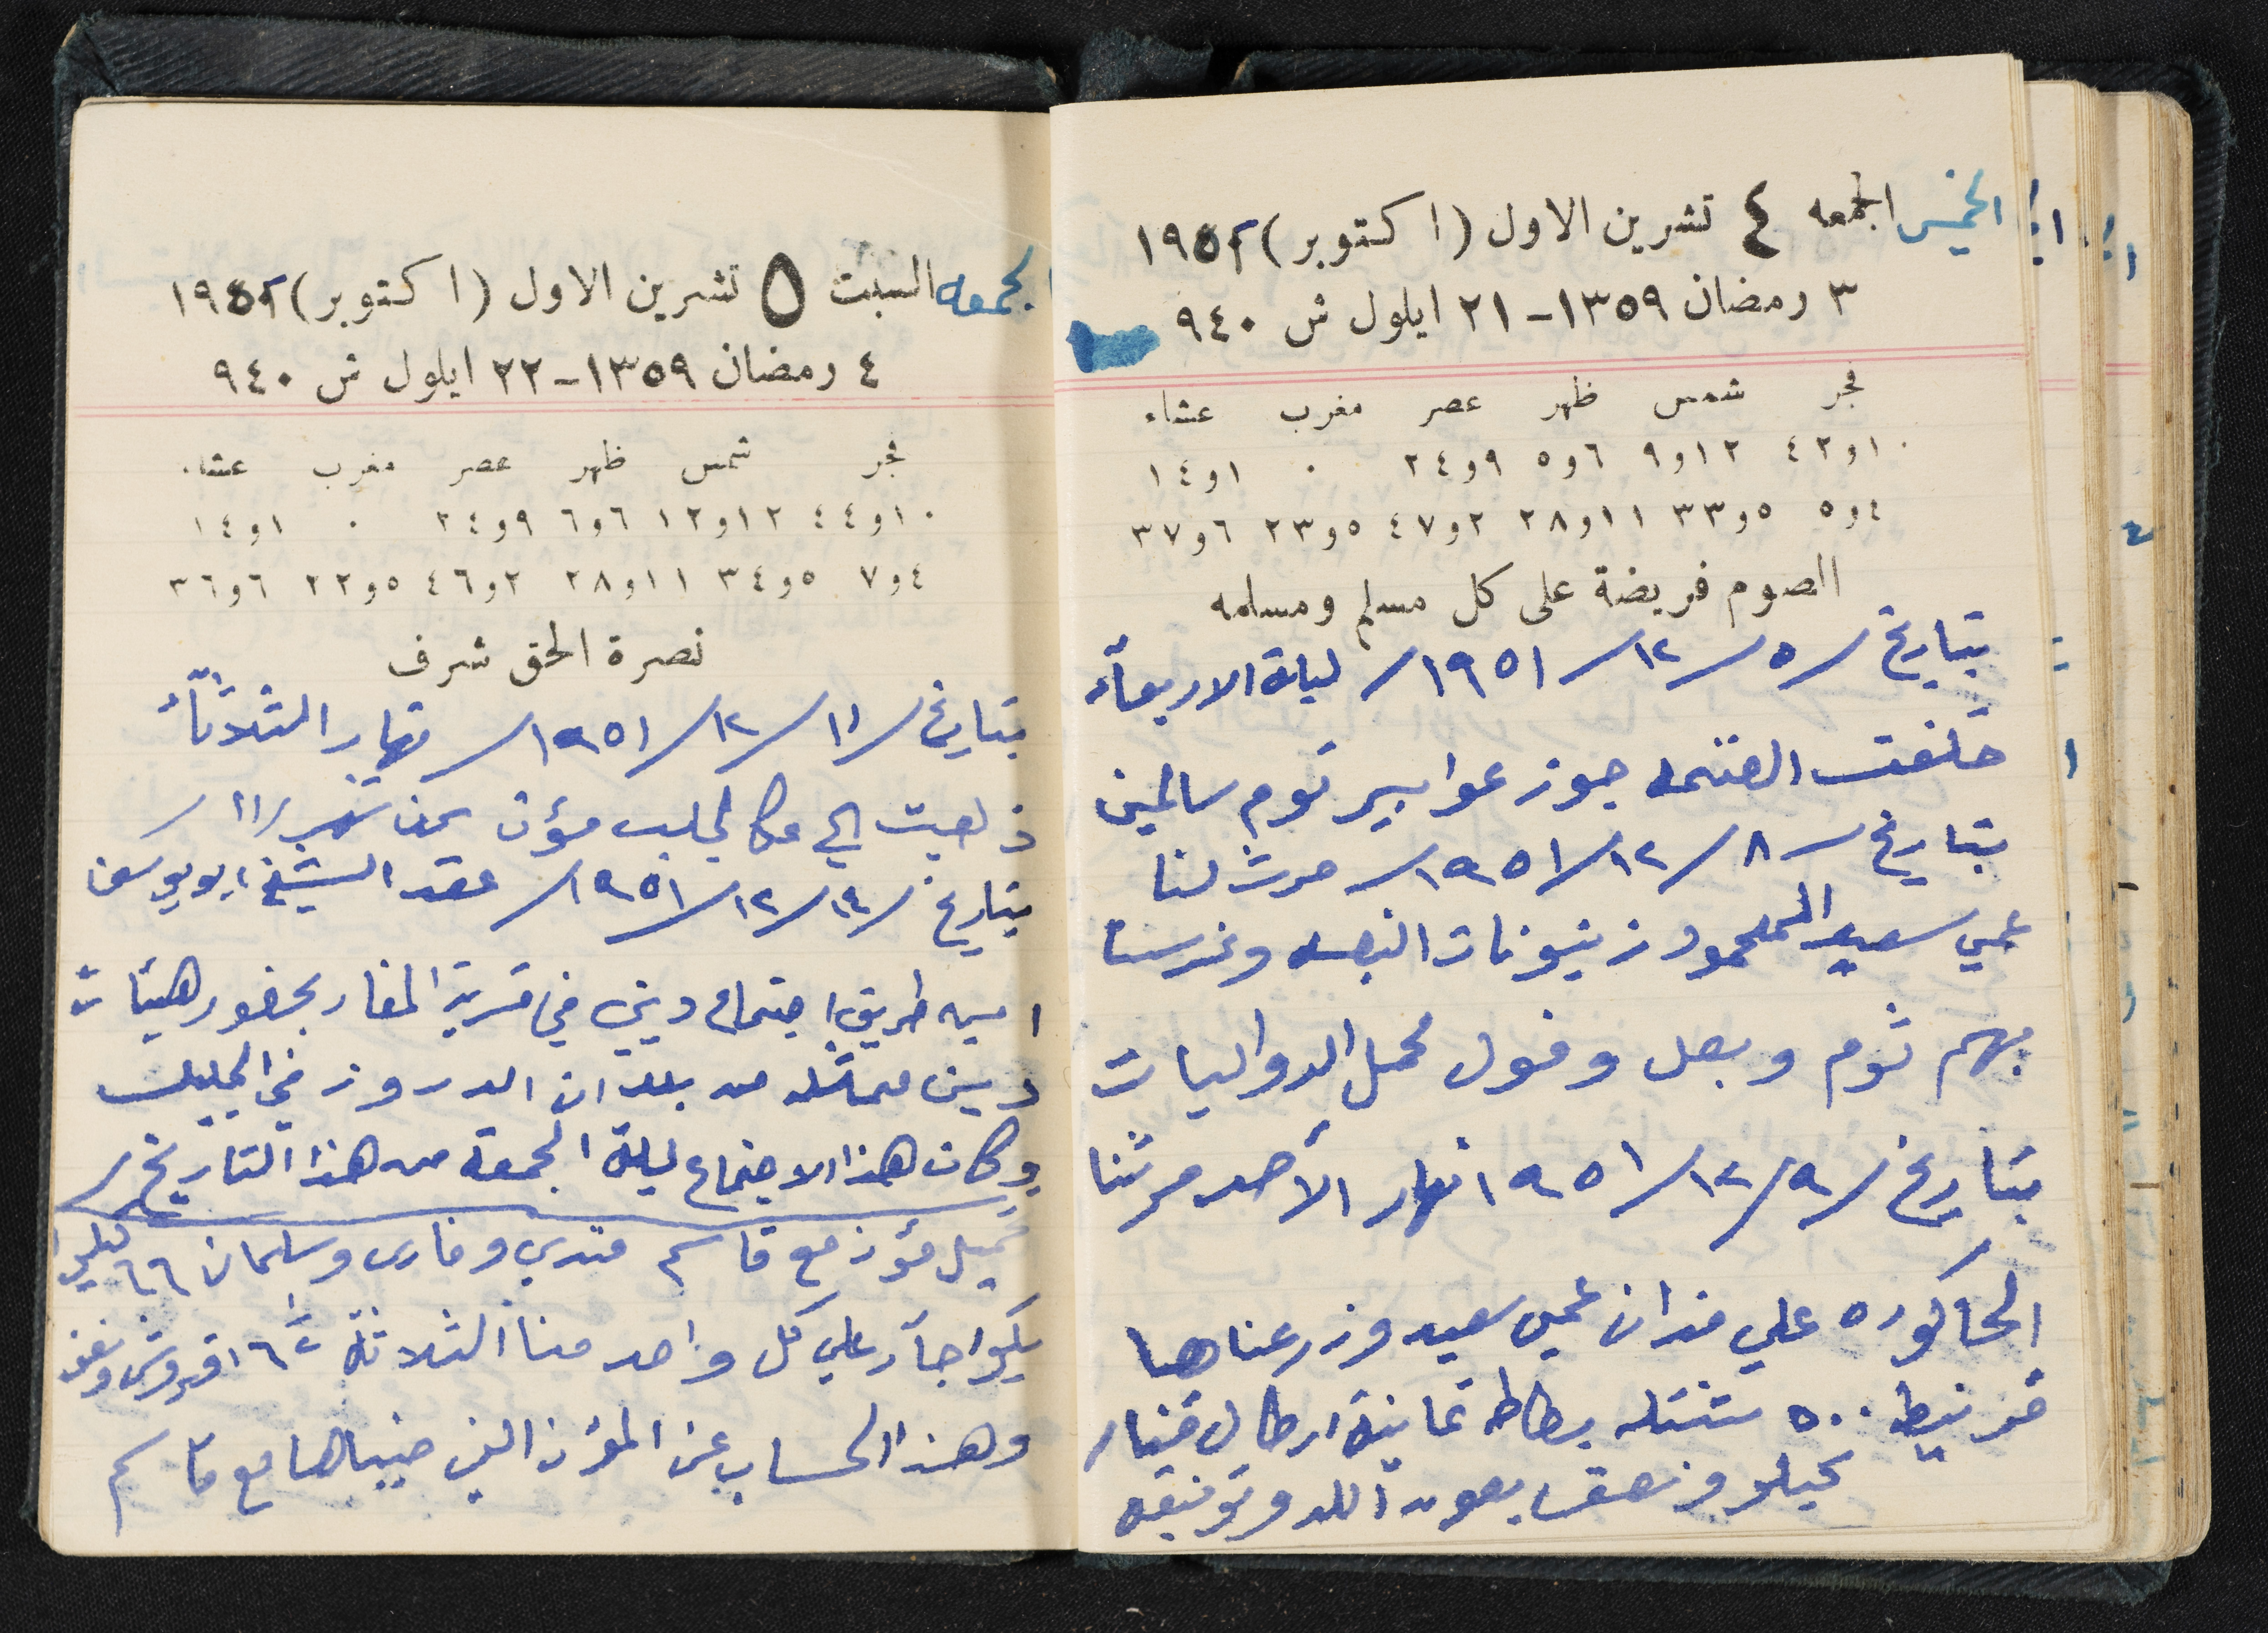 الخميس الجمعه ٤ تشرين الاول (اكتوبر) ١٩٥١
٣ رمضان ١٣٥٩ - ٢١ ايلول ش ٩٤٠
فجر شمس ظهر عصر مغرب عشاء
١٠و٤٢ ١٢و٩ ٦و٥ ٩و٢٤ ٠ ١و١٤
٤و٥ ٥و٣٣ ١١و٢٨ ٢و٤٧ ٥و٢٣ ٦و٣٧
الصوم فريضة على كل مسلم ومسلمه
بتاريخ /٥/١٢/١٩٥١/ ليلة الاربعآء
خلفت الغنمه جوز عوابير توم سالمين
بتاريخ /٨/١٢/١٩٥١/ حرث لنا
عمي سعيد المحمود زيتونات النبعه وغرسنا
بهم ثوم وبصل وفول محمل الدواليات
بتاريخ /٩/١٢/١٩٥١ نهار الأحد حرثنا
الحاكوره علي فدان عمي سعيد وزرعناها
قرنبيط ٥٠٠ شتتله بطاطه ثمانية ارطال
كيلو ونصف بعون الله وتوفيقه
الجمعه السبت ٥ تشرين الاول (اكتوبر) ١٩٥١
٤ رمضان ١٣٥٩ - ٢٢ ايلول ش ٩٤٠
فجر شمس ظهر عصر مغرب عشاء
١٠و٤٤ ١٢و١٢ ٦و٦ ٩و٢٤ ٠ ١و١٤
٤و٧ ٥و٣٤ ١١و٢٨ ٢و٤٦ ٥و٢٢ ٦و٣٦
نصرة الحق شرف
بتاريخ /١١/١٢/١٩٥١/ نهار الثلاثآء
ذهبت الي عكا لجلب مؤن عن شهر /١١/
بتاريخ /١٤/١٢/١٩٥١/ عقد الشيخ ابو يوسف
امين طريف اجتماع ديني في قرية المغار بحضور هيئات
دين ممثله من بلدان الدروز في الجليل
وكان هذا الاجتماع ليلة الجمعة من هذا التاريخ /
تحميل مؤن مع قاسم فندي وفارس وسلمان ٦٦ كيلو
جآر علي كل واحد منا الثلاثة ١٦ قروش ونصف
وهذا الحساب عن المؤن الذي جبناها مع قاسم